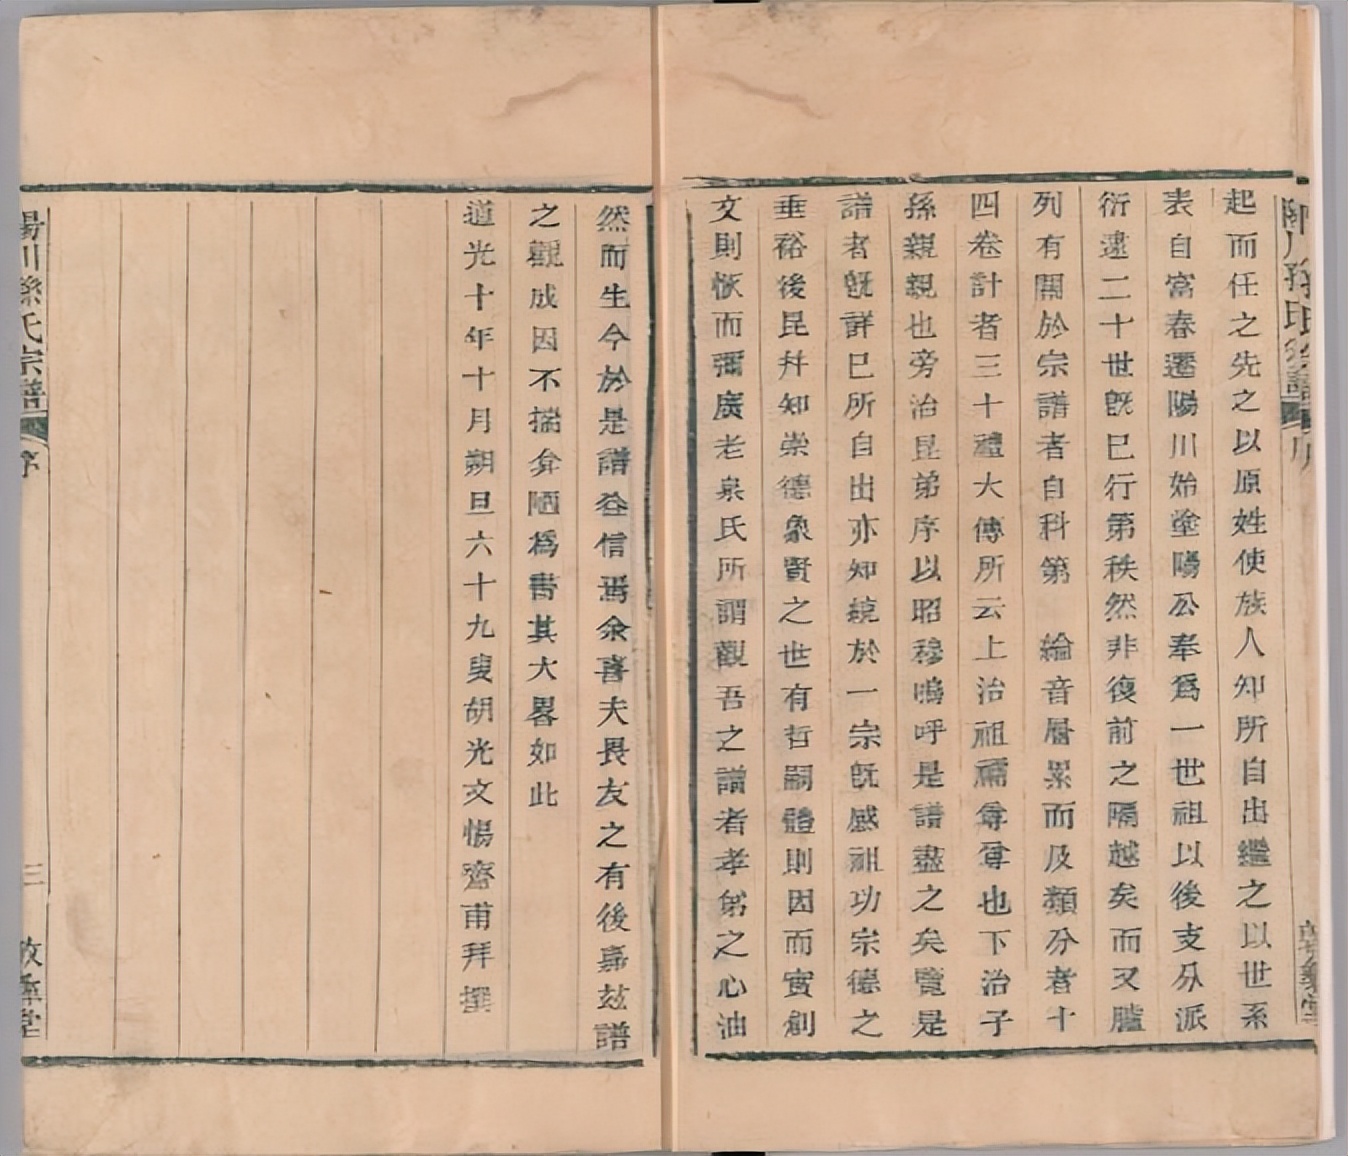 起而任之先之以原姓使族人知所自出繼之以世系
表自富春遷陽川始塗陽公奉爲一世祖以後支分派
衍逮二十世旣已行第秩然非復前之隔越矣而又臚
列有關於宗譜者自科第 綸音層累而及類分者十
四卷計者三十禮大傳所云上治祖禰尊尊也下治子
孫親親也旁治昆弟序以昭穆嗚呼是譜盡之矣覽是
譜者旣詳已所自出亦知統於一宗旣感祖功宗德之
垂裕後昆幷知崇德象賢之世有哲嗣體則因而實創
文則恢而彌廣老泉氏所謂觀吾之譜者孝弟之心油
然而生今於是譜益信焉余喜夫畏友之有後嘉玆譜
之觀成因不揣弇陋爲書其大畧如此
道光十年十月朔旦六十九叟胡光文惕齋甫拜撰
陽川孫氏宗譜 序 三